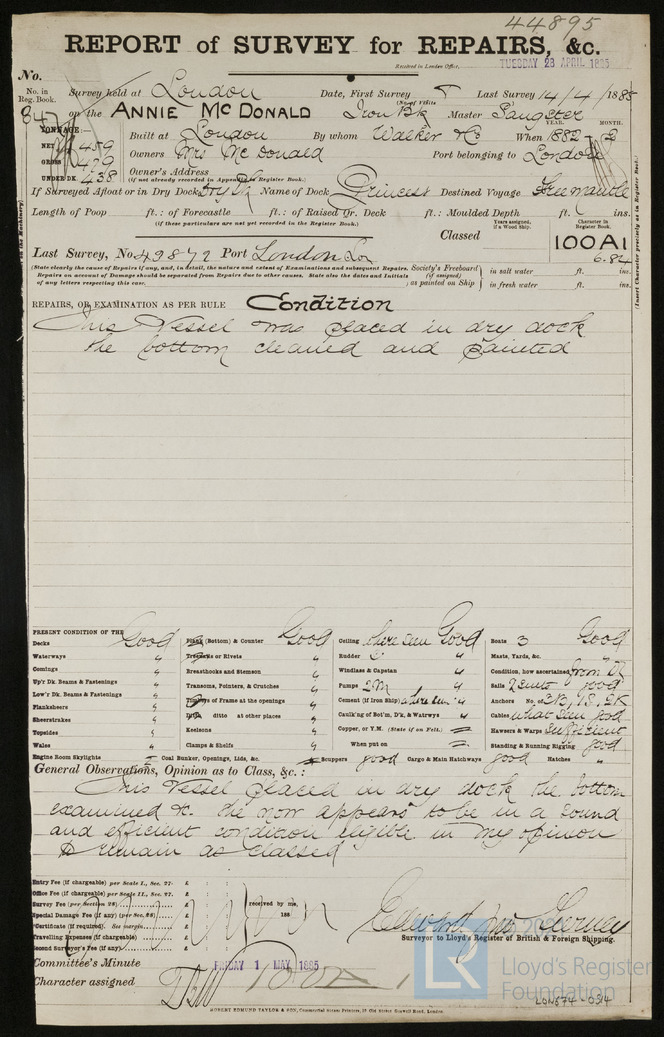 44895
REPORT of SURVEY for REPAIRS, &c.
Received in London Office,
TUESDAY 28 APRIL 1885
No.
No. in Reg. Book.
Survey held at London Date, First Survey Last Survey 14/4/1885
847 on the ANNIE McDONALD Iron Bk Master Sangster
TONNAGE:—
NET 459 Built at London By whom Walker & Co When 1882 - 2
YEAR. MONTH.
GROSS 479 Owners Mrs McDonald Port belonging to London
UNDER DK. 438 Owner's Address
(If not already recorded in Appendix to Register Book.)
If Surveyed Afloat or in Dry Dock Dry Dk Name of Dock Princess Destined Voyage Freemantle
Length of Poop ft.: of Forecastle ft.: of Raised Qr. Deck ft.: Moulded Depth ft. ins.
(If these particulars are not yet recorded in the Register Book.)
Years assigned, if a Wood Ship. Character in Register Book.
Classed 100A1
6.84
Last Survey, No. 49872 Port London
(State clearly the cause of Repairs if any, and, in detail, the nature and extent of Examinations and subsequent Repairs. Society's Freeboard in salt water ft. ins.
Repairs on account of Damage should be separated from Repairs due to other causes. State also the dates and Initials (if assigned)
of any letters respecting this case.) as painted on Ship in fresh water ft. ins.
REPAIRS, OR EXAMINATION AS PER RULE Condition
This Vessel was placed in dry dock
the bottom cleaned and painted
PRESENT CONDITION OF THE
Decks Good Plank (Bottom) & Counter Good Ceiling where seen Good Boats 3 Good
Waterways " Treenails or Rivets " Rudder " Masts, Yards, &c. "
Comings " Breasthooks and Stemson " Windlass & Capstan " Condition, how ascertained from Dk
Up'r Dk. Beams & Fastenings " Transoms, Pointers, & Crutches " Pumps 2M " Sails good
Low'r Dk. Beams & Fastenings " Timbers of Frame at the openings " Cement (if Iron Ship) where seen " Anchors No. of 3B, 1S, 2K
Planksheers " Ditto ditto at other places " Caulk'g of Bot'm, D'k, & Watrwys " Cables what seen good
Sheerstrakes " Keelsons " Copper, or Y.M. (State if on Felt.) Hawsers & Warps Sufficient
Topsides " Clamps & Shelfs " When put on Standing & Running Rigging good
Wales "
Engine Room Skylights Coal Bunker, Openings, Lids, &c. Scuppers good Cargo & Main Hatchways good Hatches "
General Observations, Opinion as to Class, &c. :
This Vessel placed in dry dock the bottom
examined &c. She now appears to be in a sound
and efficient condition eligible in my opinion
to remain as classed
Entry Fee (if chargeable) per Scale I., Sec. 27. £ : :
Office Fee (if chargeable) per Scale II., Sec. 27. £ : :
Survey Fee (per Section 28) £ : : received by me,
Special Damage Fee (if any) (per Sec. 28) £ : : 188
Certificate (if required). See margin. £ : :
Travelling Expenses (if chargeable) £ : :
Second Surveyor's Fee (if any) £ : :
Surveyor to Lloyd's Register of British & Foreign Shipping.
Committee's Minute FRIDAY 1 MAY 1885
Character assigned 100A1
Lloyd's Register
Foundation
LON674-0514
ROBERT EDMUND TAYLOR & SON, Commercial Steam Printers, 19, Old Street, Goswell Road, London.